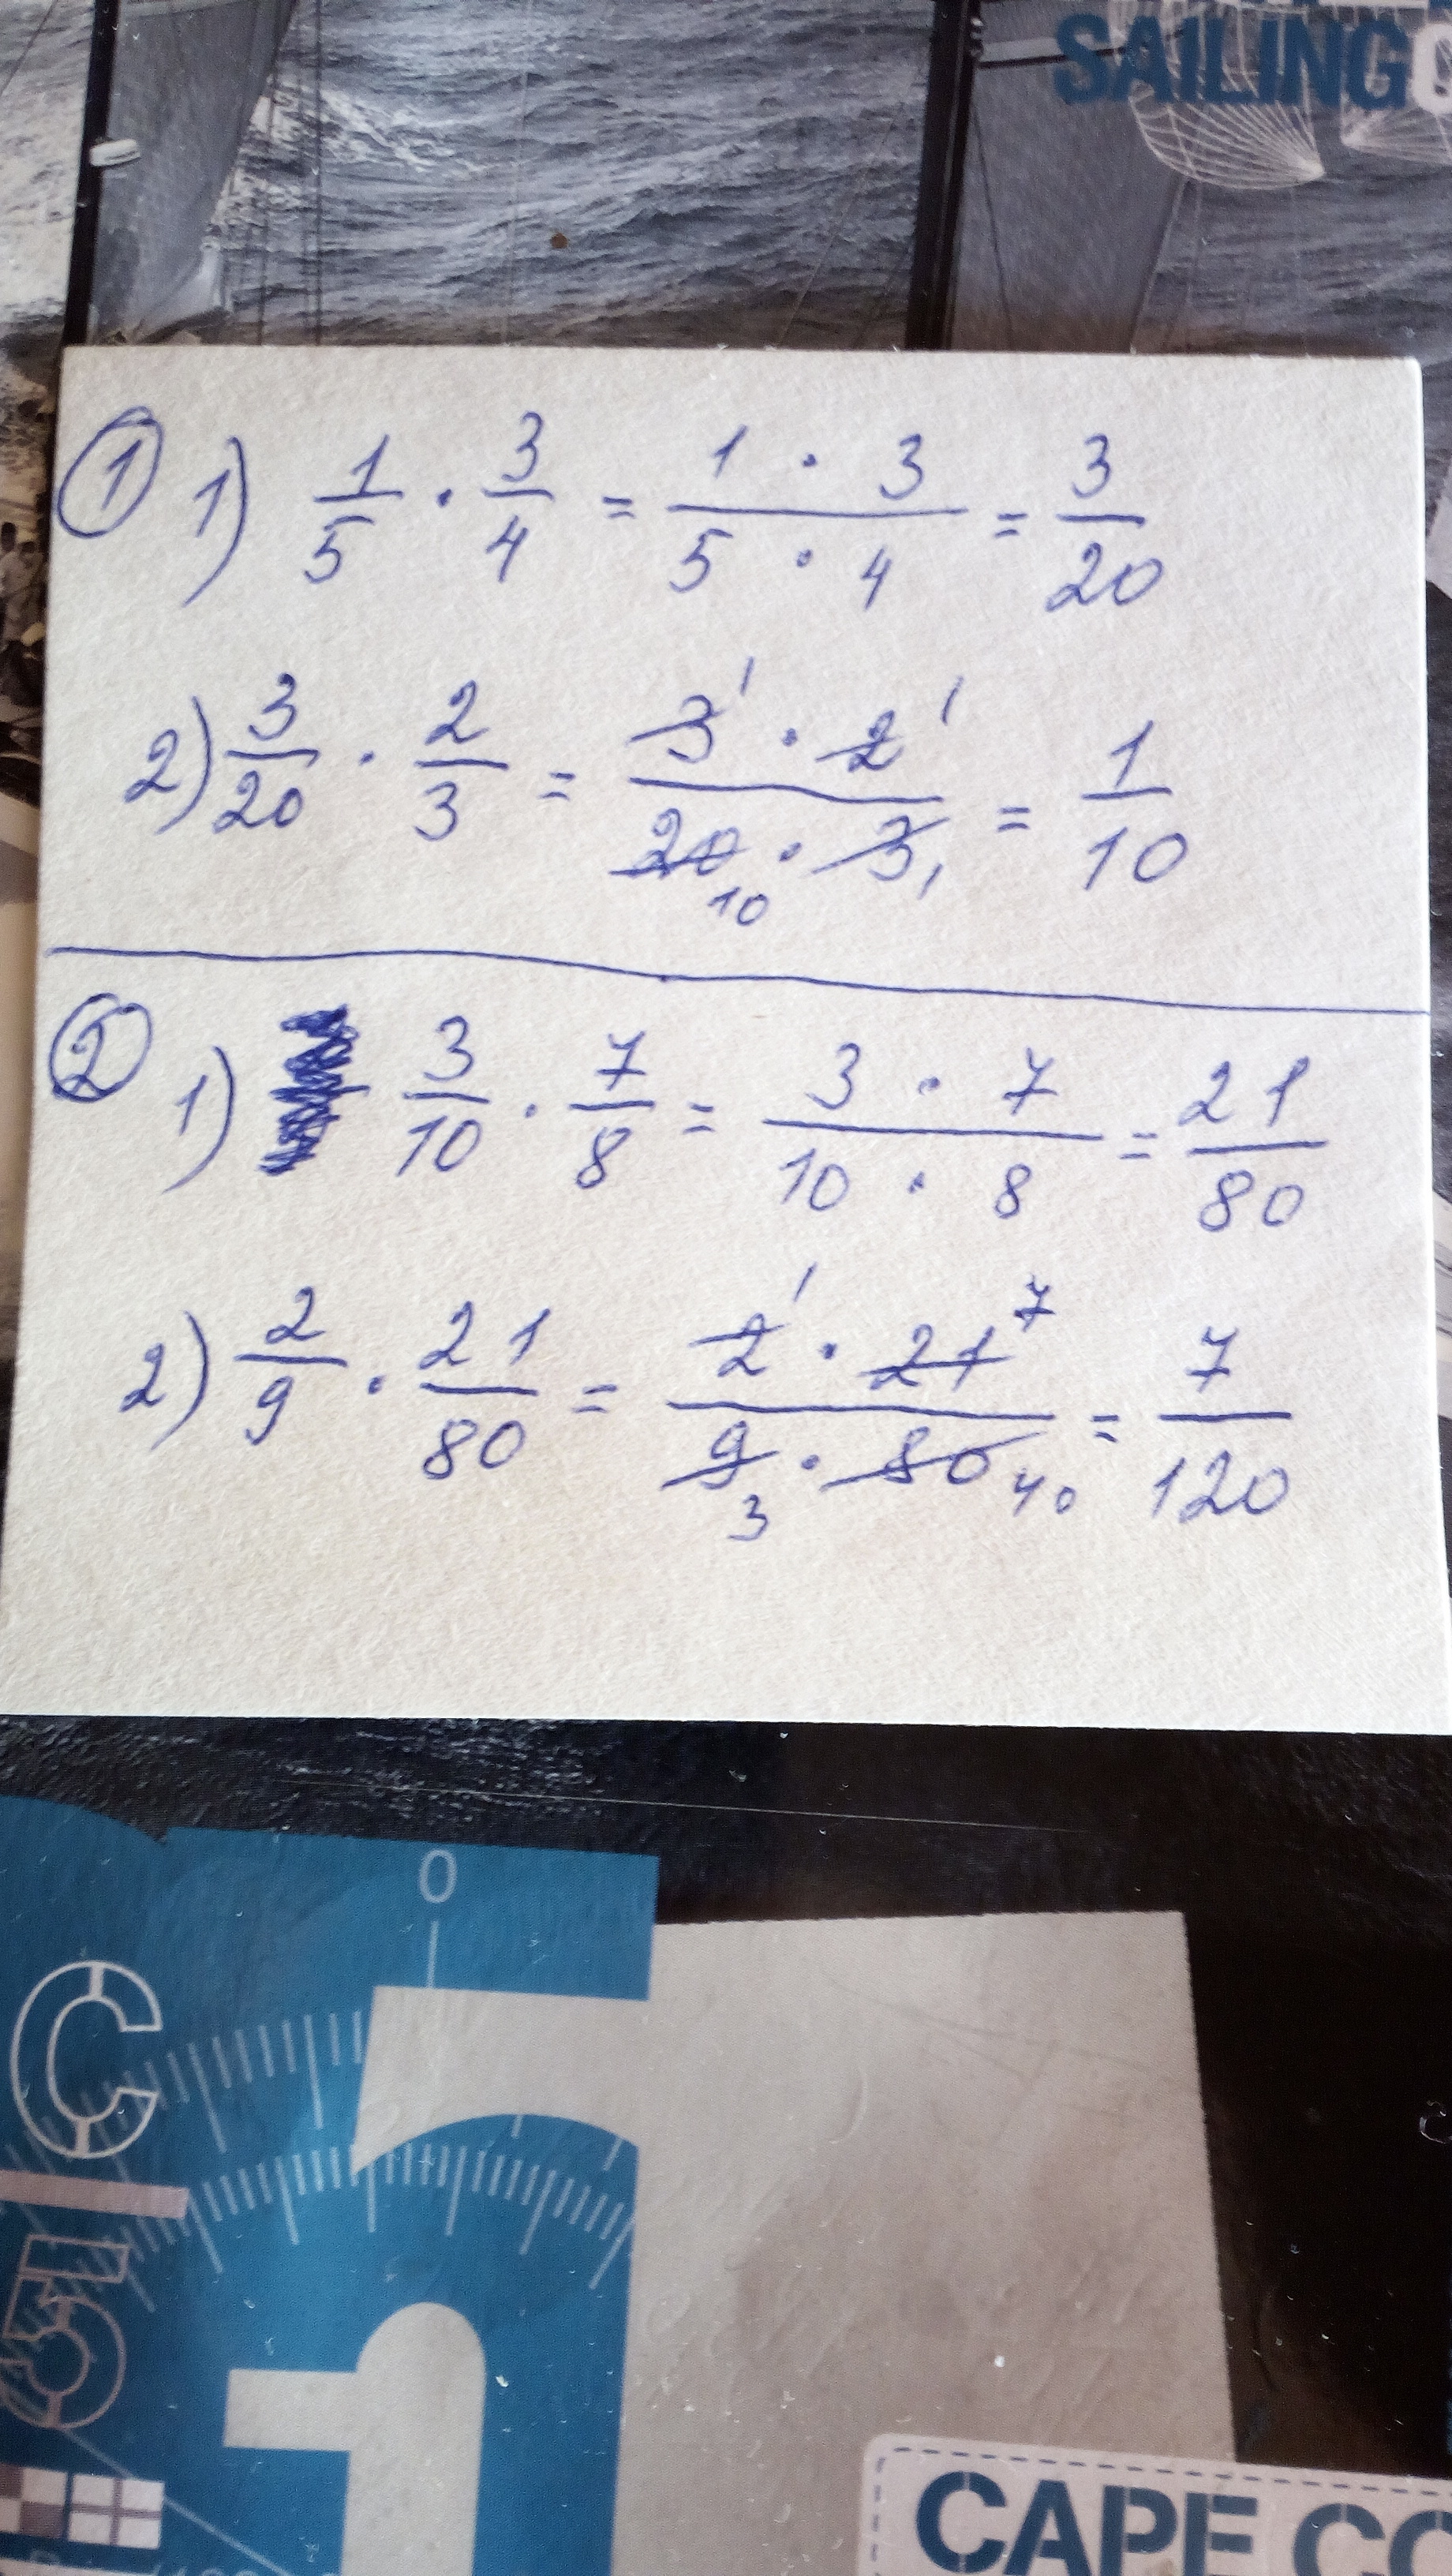 SAILING
① 1) 1/5 · 3/4 = 1 · 3 / 5 · 4 = 3/20
2) 3/20 · 2/3 = 3 1 · 2 1 / 20 10 · 3 1 = 1/10
② 1) 3/10 · 7/8 = 3 · 7 / 10 · 8 = 21/80
2) 2/9 · 21/80 = 2 1 · 21 7 / 9 3 · 80 40 = 7/120
0
C
5
CAPE CO